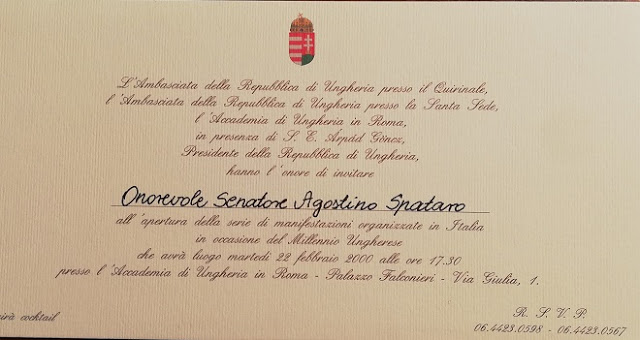 L'Ambasciata della Repubblica di Ungheria presso il Quirinale,
l'Ambasciata della Repubblica di Ungheria presso la Santa Sede,
l'Accademia di Ungheria in Roma,
in presenza di S. E. Árpád Göncz,
Presidente della Repubblica di Ungheria,
hanno l'onore di invitare
Onorevole Senatore Agostino Spataro
all'apertura della serie di manifestazioni organizzate in Italia
in occasione del Millennio Ungherese
che avrà luogo martedì 22 febbraio 2000 alle ore 17.30
presso l'Accademia di Ungheria in Roma - Palazzo Falconieri - Via Giulia, 1.
cocktail
R. S. V. P.
06.4423.0598 - 06.4423.0567